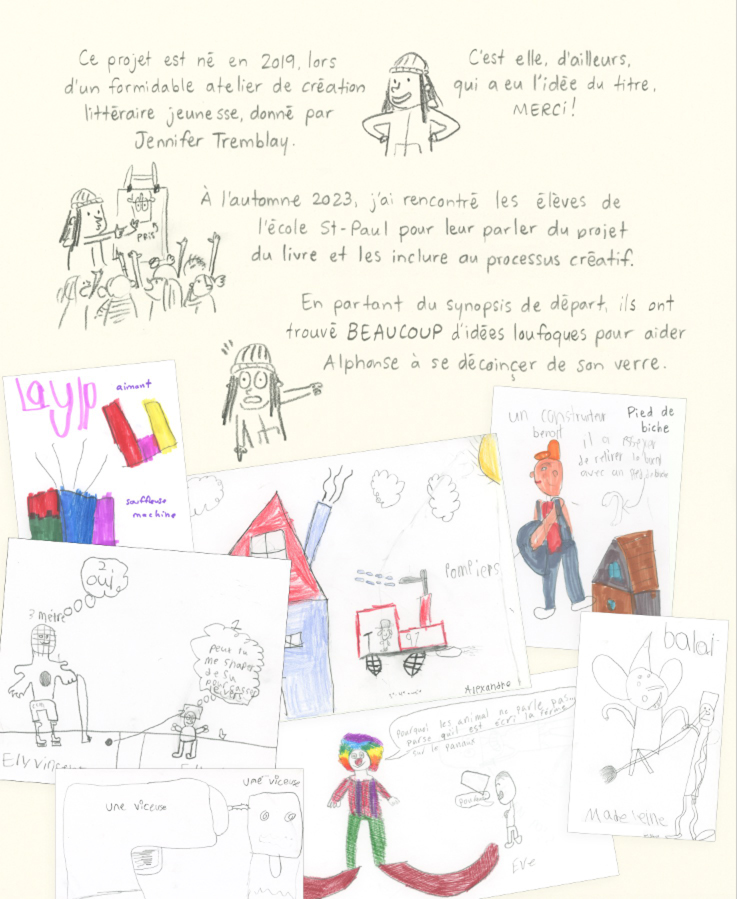 Ce projet est né en 2019, lors
d'un formidable atelier de création
littéraire jeunesse, donné par
Jennifer Tremblay.
C'est elle, d'ailleurs,
qui a eu l'idée du titre,
MERCi!
PRIS
À l'automne 2023, j'ai rencontré les élèves de
l'école St-Paul pour leur parler du projet
du livre et les inclure au processus créatif.
En partant du synopsis de départ, ils ont
trouvé BEAUCOUP d'idées loufoques pour aider
Alphonse à se décoincer de son verre.
aimant
souffleuse
machine
un constructeur
benoit
Pied de
biche
il a
de retirer le
avec un
Pompiers
Alexandre
2
oui
3 mètre
1
peut tu
me
de
Ely
balai
Madeleine
pourquoi les animal ne parle pa...
parse qu'il est écri la ferme
sur le panau
Eve
une viceuse
une viceuse